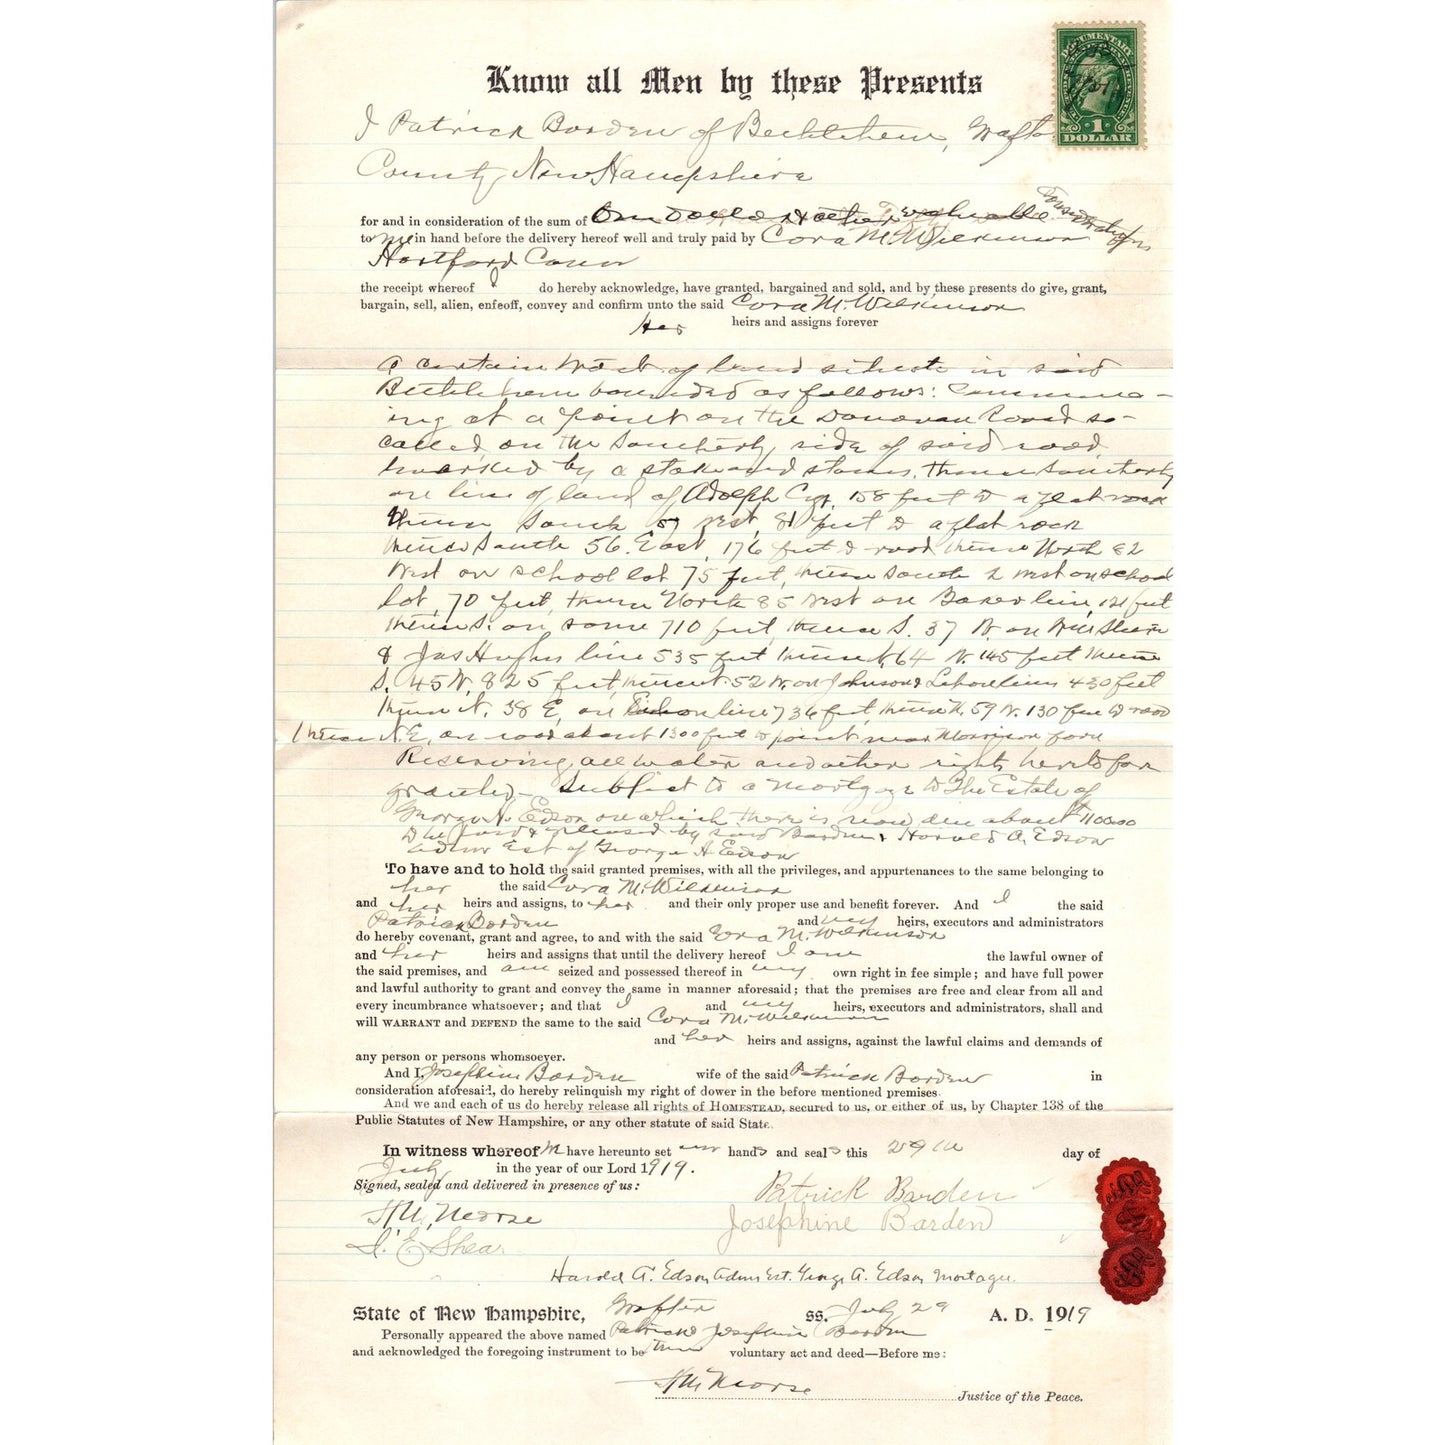 Know all Men by these Presents
DOCUMENTARY
1
DOLLAR
I Patrick Barden of Bethlehem, Grafton
County New Hampshire
for and in consideration of the sum of One Dollar & other valuable considerations
to me in hand before the delivery hereof well and truly paid by Cora M. Wilkinson
Hartford Conn
the receipt whereof I do hereby acknowledge, have granted, bargained and sold, and by these presents do give, grant,
bargain, sell, alien, enfeoff, convey and confirm unto the said Cora M. Wilkinson
Her heirs and assigns forever
a certain tract of land situate in said
Bethlehem bounded as follows: Commenc-
ing at a point on the Donovan Road so-
called, on the Southerly side of said road
marked by a stake and stones, thence Southerly
on line of land of Adolph 158 feet to a flat rock
thence South West, 81 feet to a flat rock
thence South 56 East, 176 feet to road thence North 82
West on school lot 75 feet, thence South 2 West on school
lot, 70 feet, thence North 85 West on Baker line, 121 feet
thence S. on same 710 feet, thence S. 37 W. on Will Shea
& Jas Hughes line 535 feet thence N. 64 W. 145 feet thence
S. 45 W, 825 feet, thence N. 52 W. on Johnson & line 430 feet
thence N. 38 E, on line 736 feet, thence N. 59 W. 130 feet to road
thence N.E. on road about 1300 feet to point near Morrison farm
Reserving all water and other rights heretofore
granted - Subject to a mortgage to the Estate of
George H. Edson on which there is now due about $1100.00
to be paid & released by said Barden & Harold A. Edson
Admr Est of George H. Edson
To have and to hold the said granted premises, with all the privileges, and appurtenances to the same belonging to
her the said Cora M. Wilkinson
and her heirs and assigns, to her and their only proper use and benefit forever. And I the said
Patrick Barden and my heirs, executors and administrators
do hereby covenant, grant and agree, to and with the said Cora M. Wilkinson
and her heirs and assigns that until the delivery hereof I am the lawful owner of
the said premises, and am seized and possessed thereof in my own right in fee simple; and have full power
and lawful authority to grant and convey the same in manner aforesaid; that the premises are free and clear from all and
every incumbrance whatsoever; and that I and my heirs, executors and administrators, shall and
will WARRANT and DEFEND the same to the said Cora M. Wilkinson
and her heirs and assigns, against the lawful claims and demands of
any person or persons whomsoever.
And I, Josephine Barden wife of the said Patrick Barden in
consideration aforesaid, do hereby relinquish my right of dower in the before mentioned premises.
And we and each of us do hereby release all rights of HOMESTEAD, secured to us, or either of us, by Chapter 138 of the
Public Statutes of New Hampshire, or any other statute of said State.
In witness whereof We have hereunto set our hands and seals this 29th day of
July in the year of our Lord 1919.
Signed, sealed and delivered in presence of us:
H.M. Morse
Patrick Barden
Josephine Barden
I. E. Shea
Harold A. Edson Admr Est. George A. Edson Mortagee.
State of New Hampshire, Grafton ss. July 29 A. D. 1919
Personally appeared the above named Patrick & Josephine Barden
and acknowledged the foregoing instrument to be their voluntary act and deed—Before me:
H M Morse
Justice of the Peace.